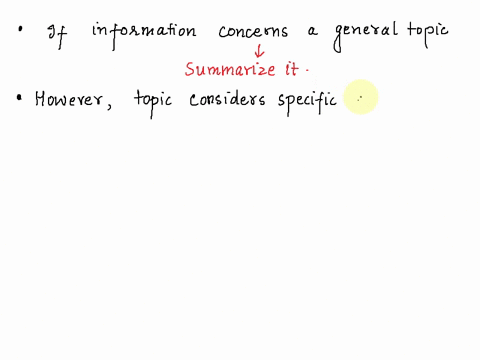 • If information concerns a general topic
↓
Summarize it.
• However, topic considers specific